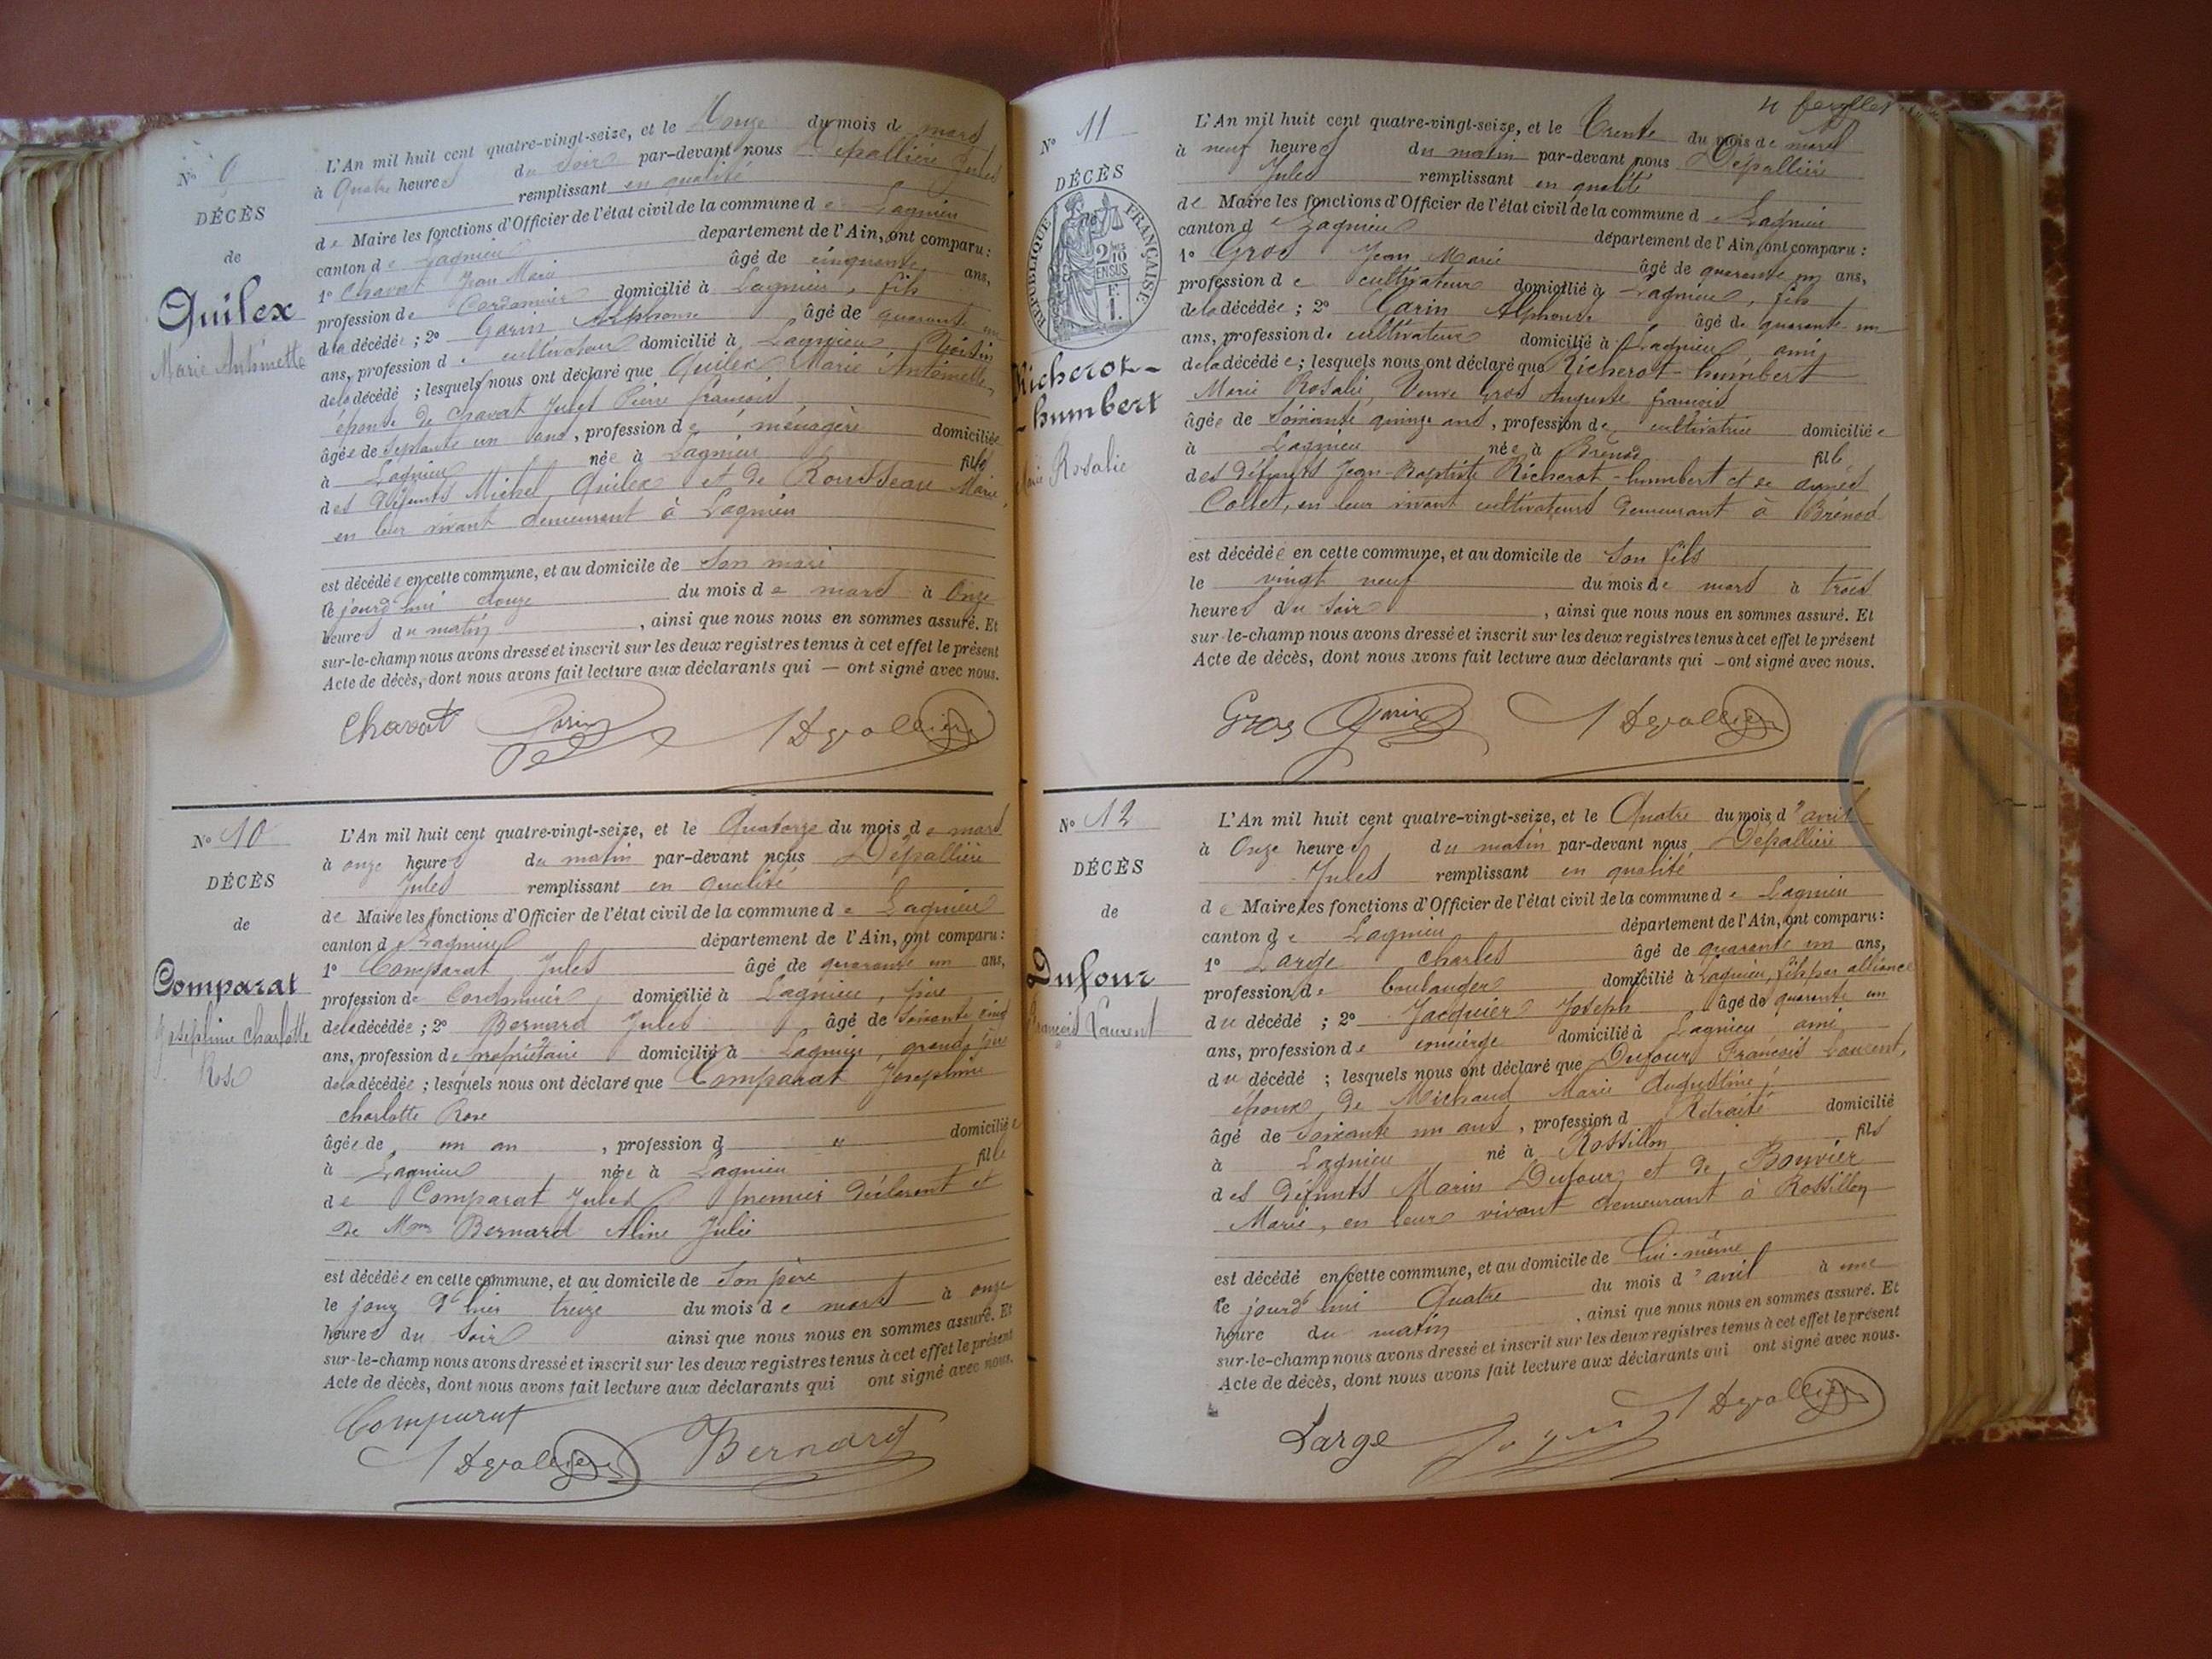 N° 9
DÉCÈS
de
Quilex
Marie Antoinette
L'An mil huit cent quatre-vingt-seize, et le Douze du mois de mars
à Quatre heures du soir par-devant nous Depallière Jules
remplissant en qualité
de Maire les fonctions d'Officier de l'état civil de la commune de Lagnieu
canton de Lagnieu département de l'Ain, ont comparu :
1° Chavat Jean Marie âgé de cinquante ans,
profession de Cordonnier domicilié à Lagnieu, fils
de la décédée ; 2° Garin Alphonse âgé de quarante un
ans, profession de cultivateur domicilié à Lagnieu, Voisin
de la décédé ; lesquels nous ont déclaré que Quilex Marie Antoinette,
épouse de Chavat Jules Pierre François
âgée de septante un ans, profession de ménagère domiciliée
à Lagnieu née à Lagnieu fille
des défunts Michel Quilex et de Rousseau Marie,
en leur vivant demeurant à Lagnieu
est décédée en cette commune, et au domicile de son mari
le jourd'hui douze du mois de mars à Onze
heures du matin, ainsi que nous nous en sommes assuré. Et
sur-le-champ nous avons dressé et inscrit sur les deux registres tenus à cet effet le présent
Acte de décès, dont nous avons fait lecture aux déclarants qui — ont signé avec nous.
Chavat Garin J Depallière
N° 10
DÉCÈS
de
Comparat
Joséphine Charlotte
Rose
L'An mil huit cent quatre-vingt-seize, et le Quatorze du mois de mars
à onze heures du matin par-devant nous Depallière
Jules remplissant en qualité
de Maire les fonctions d'Officier de l'état civil de la commune de Lagnieu
canton de Lagnieu département de l'Ain, ont comparu :
1° Comparat Jules âgé de quarante un ans,
profession de Cordonnier domicilié à Lagnieu, père
de la décédée ; 2° Bernard Jules âgé de soixante cinq
ans, profession de propriétaire domicilié à Lagnieu, grand père
de la décédée ; lesquels nous ont déclaré que Comparat Joséphine
charlotte Rose
âgée de un an, profession d " domiciliée
à Lagnieu née à Lagnieu fille
de Comparat Jules premier déclarant et
de Mme Bernard Aline Julie
est décédée en cette commune, et au domicile de son père
le jour d'hier treize du mois de mars à onze
heures du soir ainsi que nous nous en sommes assuré. Et
sur-le-champ nous avons dressé et inscrit sur les deux registres tenus à cet effet le présent
Acte de décès, dont nous avons fait lecture aux déclarants qui ont signé avec nous.
Comparat
J Depallière Bernard
4 feuillet
N° 11
DÉCÈS
de
RÉPUBLIQUE FRANÇAISE
2/10
EN SUS
Richerot-
-humbert
Marie Rosalie
L'An mil huit cent quatre-vingt-seize, et le Trente du mois de mars
à neuf heures du matin par-devant nous Depallière
Jules remplissant en qualité
de Maire les fonctions d'Officier de l'état civil de la commune de Lagnieu
canton de Lagnieu département de l'Ain, ont comparu :
1° Gros Jean Marie âgé de quarante un ans,
profession de cultivateur domicilié à Lagnieu, fils
de la décédée ; 2° Garin Alphonse âgé de quarante un
ans, profession de cultivateur domicilié à Lagnieu, ami
de la décédée ; lesquels nous ont déclaré que Richerot-humbert
Marie Rosalie, Veuve Gros Auguste François
âgée de soixante quinze ans, profession de cultivatrice domiciliée
à Lagnieu née à Brénod fille
des défunts Jean-Baptiste Richerot-humbert et de Aimée
Collet, en leur vivant cultivateurs demeurant à Brénod
est décédée en cette commune, et au domicile de son fils
le vingt neuf du mois de mars à trois
heures du soir, ainsi que nous nous en sommes assuré. Et
sur-le-champ nous avons dressé et inscrit sur les deux registres tenus à cet effet le présent
Acte de décès, dont nous avons fait lecture aux déclarants qui — ont signé avec nous.
Gros Garin J Depallière
N° 12
DÉCÈS
de
Dufour
François Laurent
L'An mil huit cent quatre-vingt-seize, et le Quatre du mois d'avril
à Onze heures du matin par-devant nous Depallière
Jules remplissant en qualité
de Maire les fonctions d'Officier de l'état civil de la commune de Lagnieu
canton de Lagnieu département de l'Ain, ont comparu :
1° Large Charles âgé de quarante un ans,
profession de boulanger domicilié à Lagnieu, fils par alliance
du décédé ; 2° Jacquier Joseph âgé de quarante un
ans, profession de concierge domicilié à Lagnieu ami
du décédé ; lesquels nous ont déclaré que Dufour François Laurent,
époux de Michaud Marie Augustine,
âgé de soixante un ans, profession d Retraité domicilié
à Lagnieu né à Rossillon fils
des défunts Marin Dufour et de Bouvier
Marie, en leur vivant demeurant à Rossillon
est décédé en cette commune, et au domicile de lui-même
le jourd'hui Quatre du mois d'avril à une
heure du matin, ainsi que nous nous en sommes assuré. Et
sur-le-champ nous avons dressé et inscrit sur les deux registres tenus à cet effet le présent
Acte de décès, dont nous avons fait lecture aux déclarants qui ont signé avec nous.
Large J Depallière